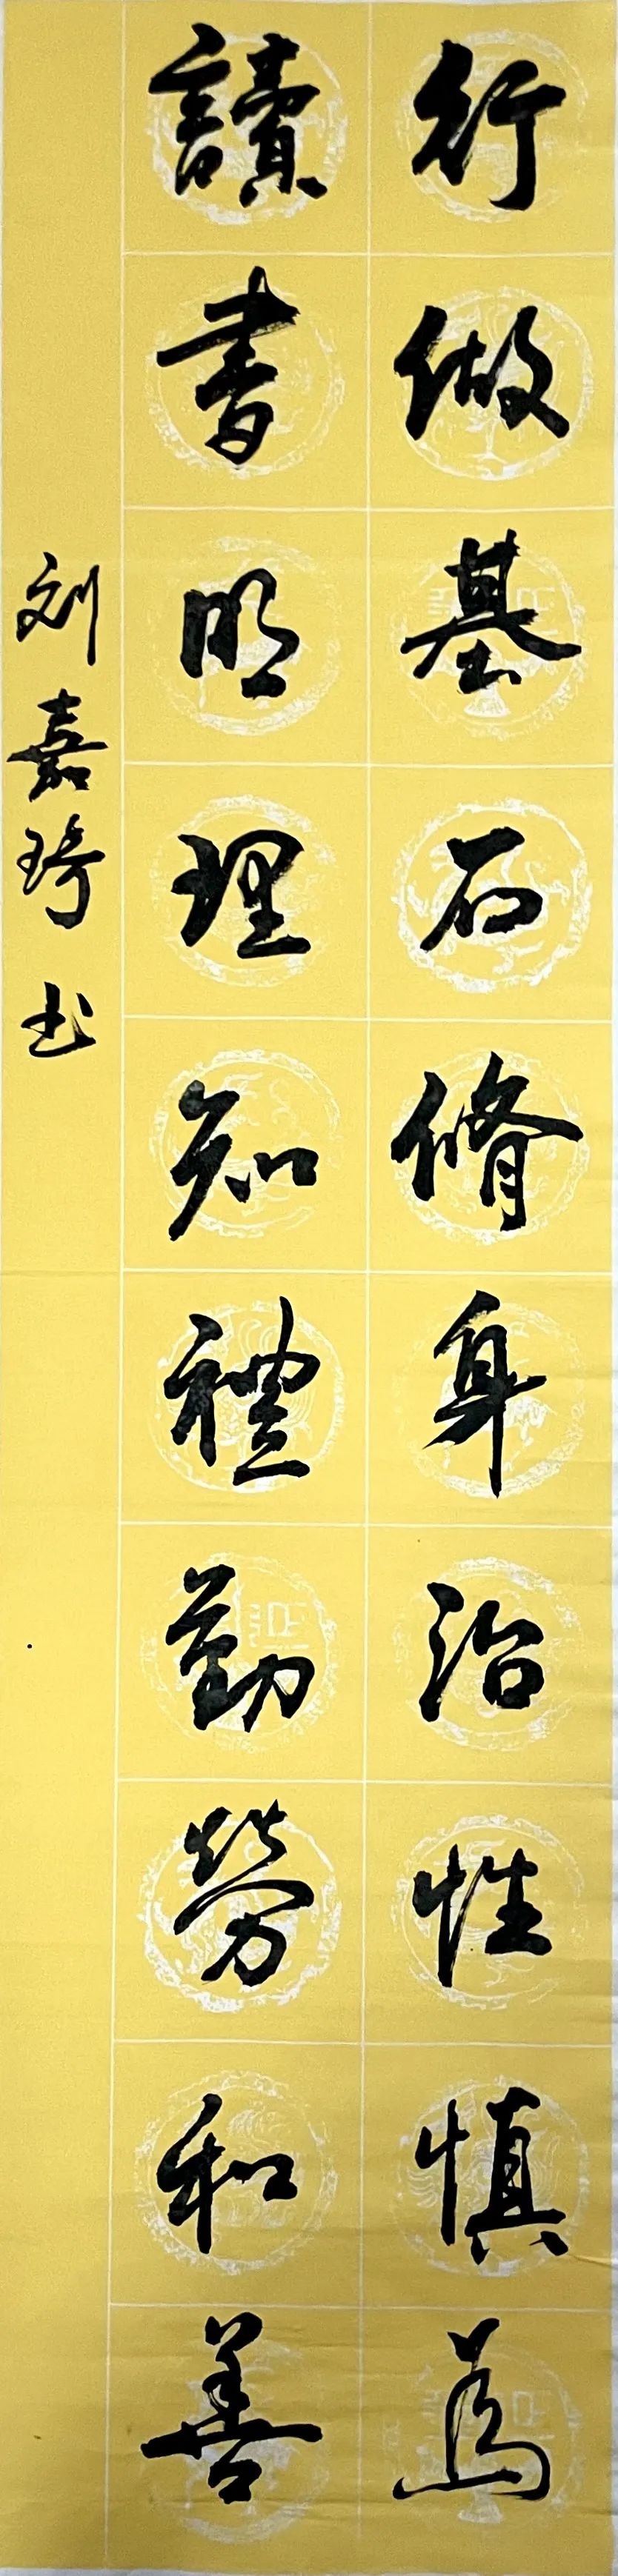 行做基石脩身治性慎為
讀書明理知禮勤勞和善
刘嘉琦书